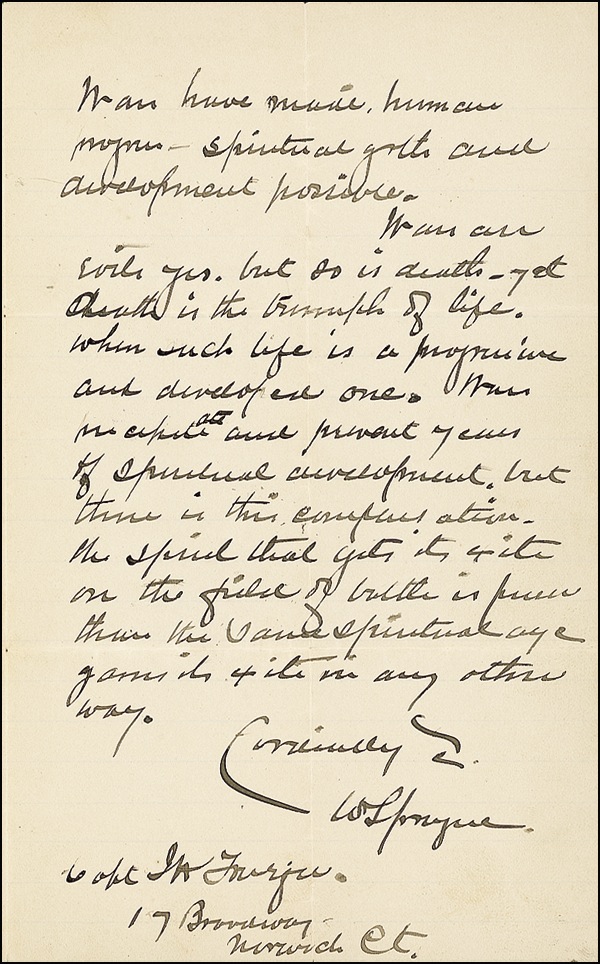 Wars have made, human
progress - spiritual gvth and
development possible.
Wars are
evils yes. but so is death - yet
death is the triumph of life.
when such life is a progressive
and developed one. Wars
precipitate and prevent years
of spiritual development. but
there is this compensation.
the spirit that gets its exite
on the field of battle is purer
than the same spiritual age
gains its exite in any other
way.
Cordially
W Sprague.
Capt
17 Broadway
Norwich Ct.